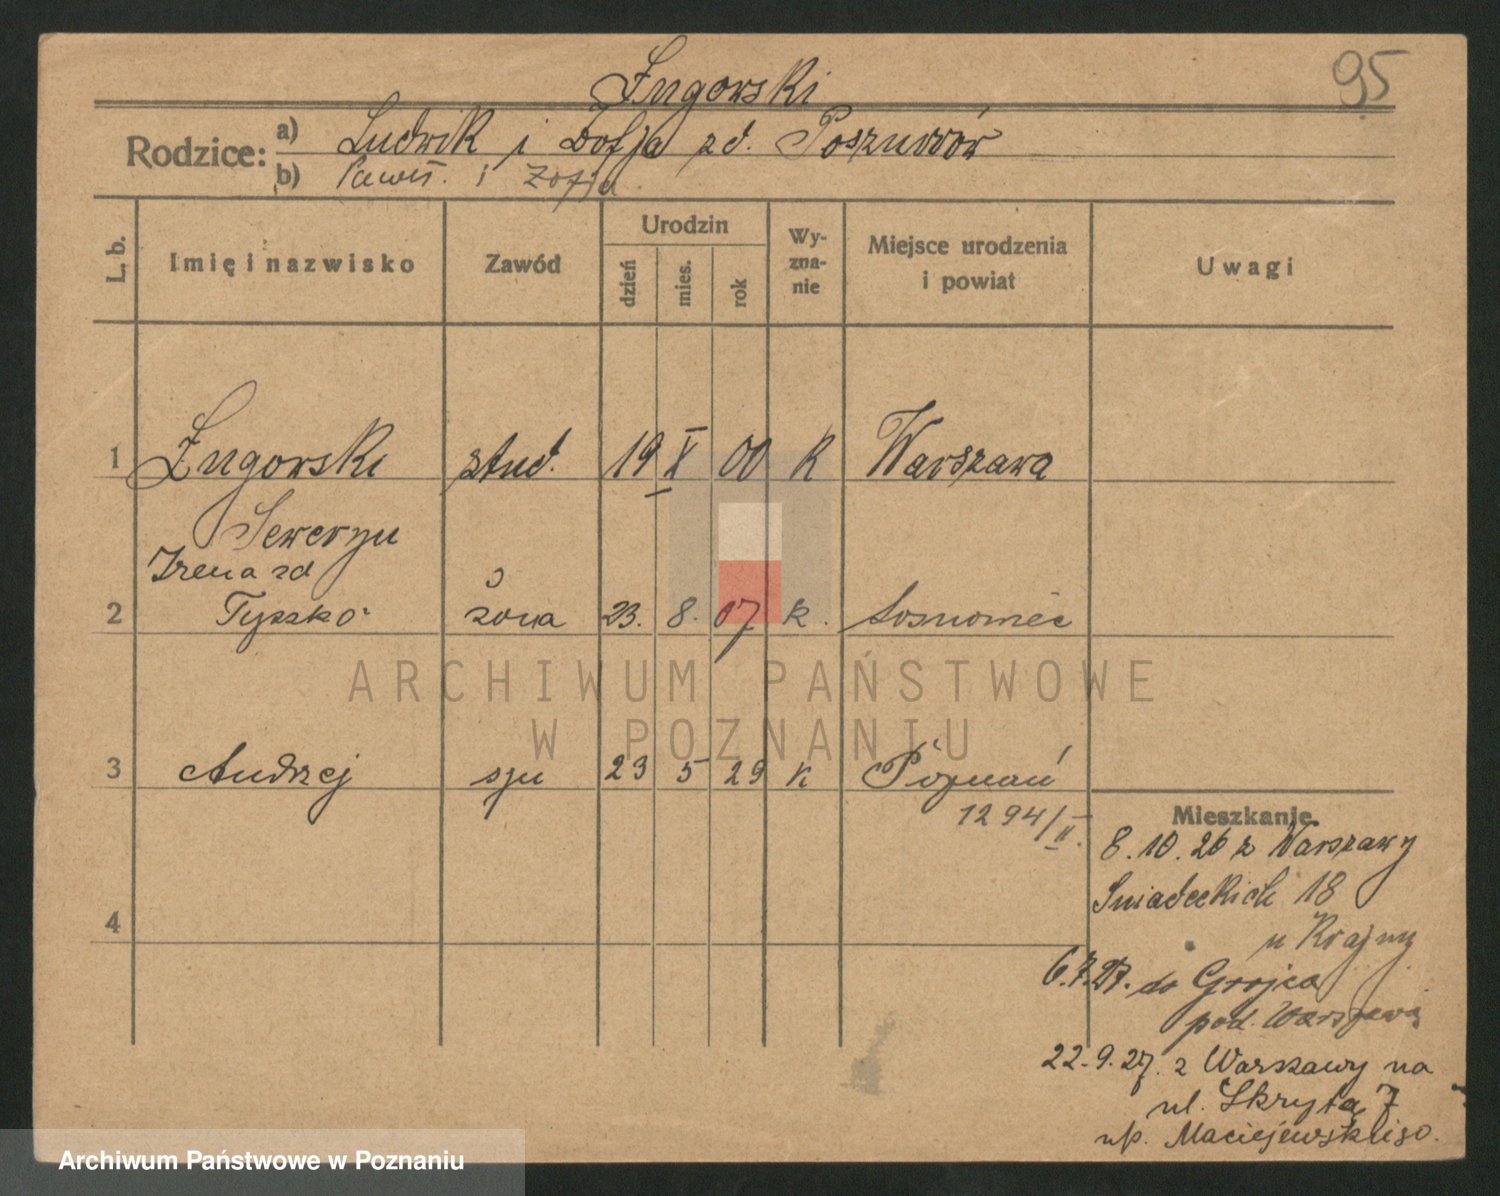 95
Żugowski
Rodzice: a) Ludwik i Zofja zd.
b) Paweł. i Zofja
L. b.
Imię i nazwisko
Zawód
Urodzin
dzień
mies.
rok
Wy-
zna-
nie
Miejsce urodzenia
i powiat
Uwagi
1 Żugowski stud. 19 X 00 K Warszawa
Seweryn
Irena zd
2 Tyszko żona 23. 8. 07 k. Sosnowiec
ARCHIWUM PAŃSTWOWE
W POZNANIU
3 Andrzej syn 23 5 29 k Poznań
1294/II.
4
Mieszkanie.
8.10.26 z Warszawy
Śniadeckich 18
u Krajny
6.7.27. do Grójca
pod. Warszawą
22.9.27. z Warszawy na
ul. Skryta 7
u p. Maciejewskiego.
Archiwum Państwowe w Poznaniu